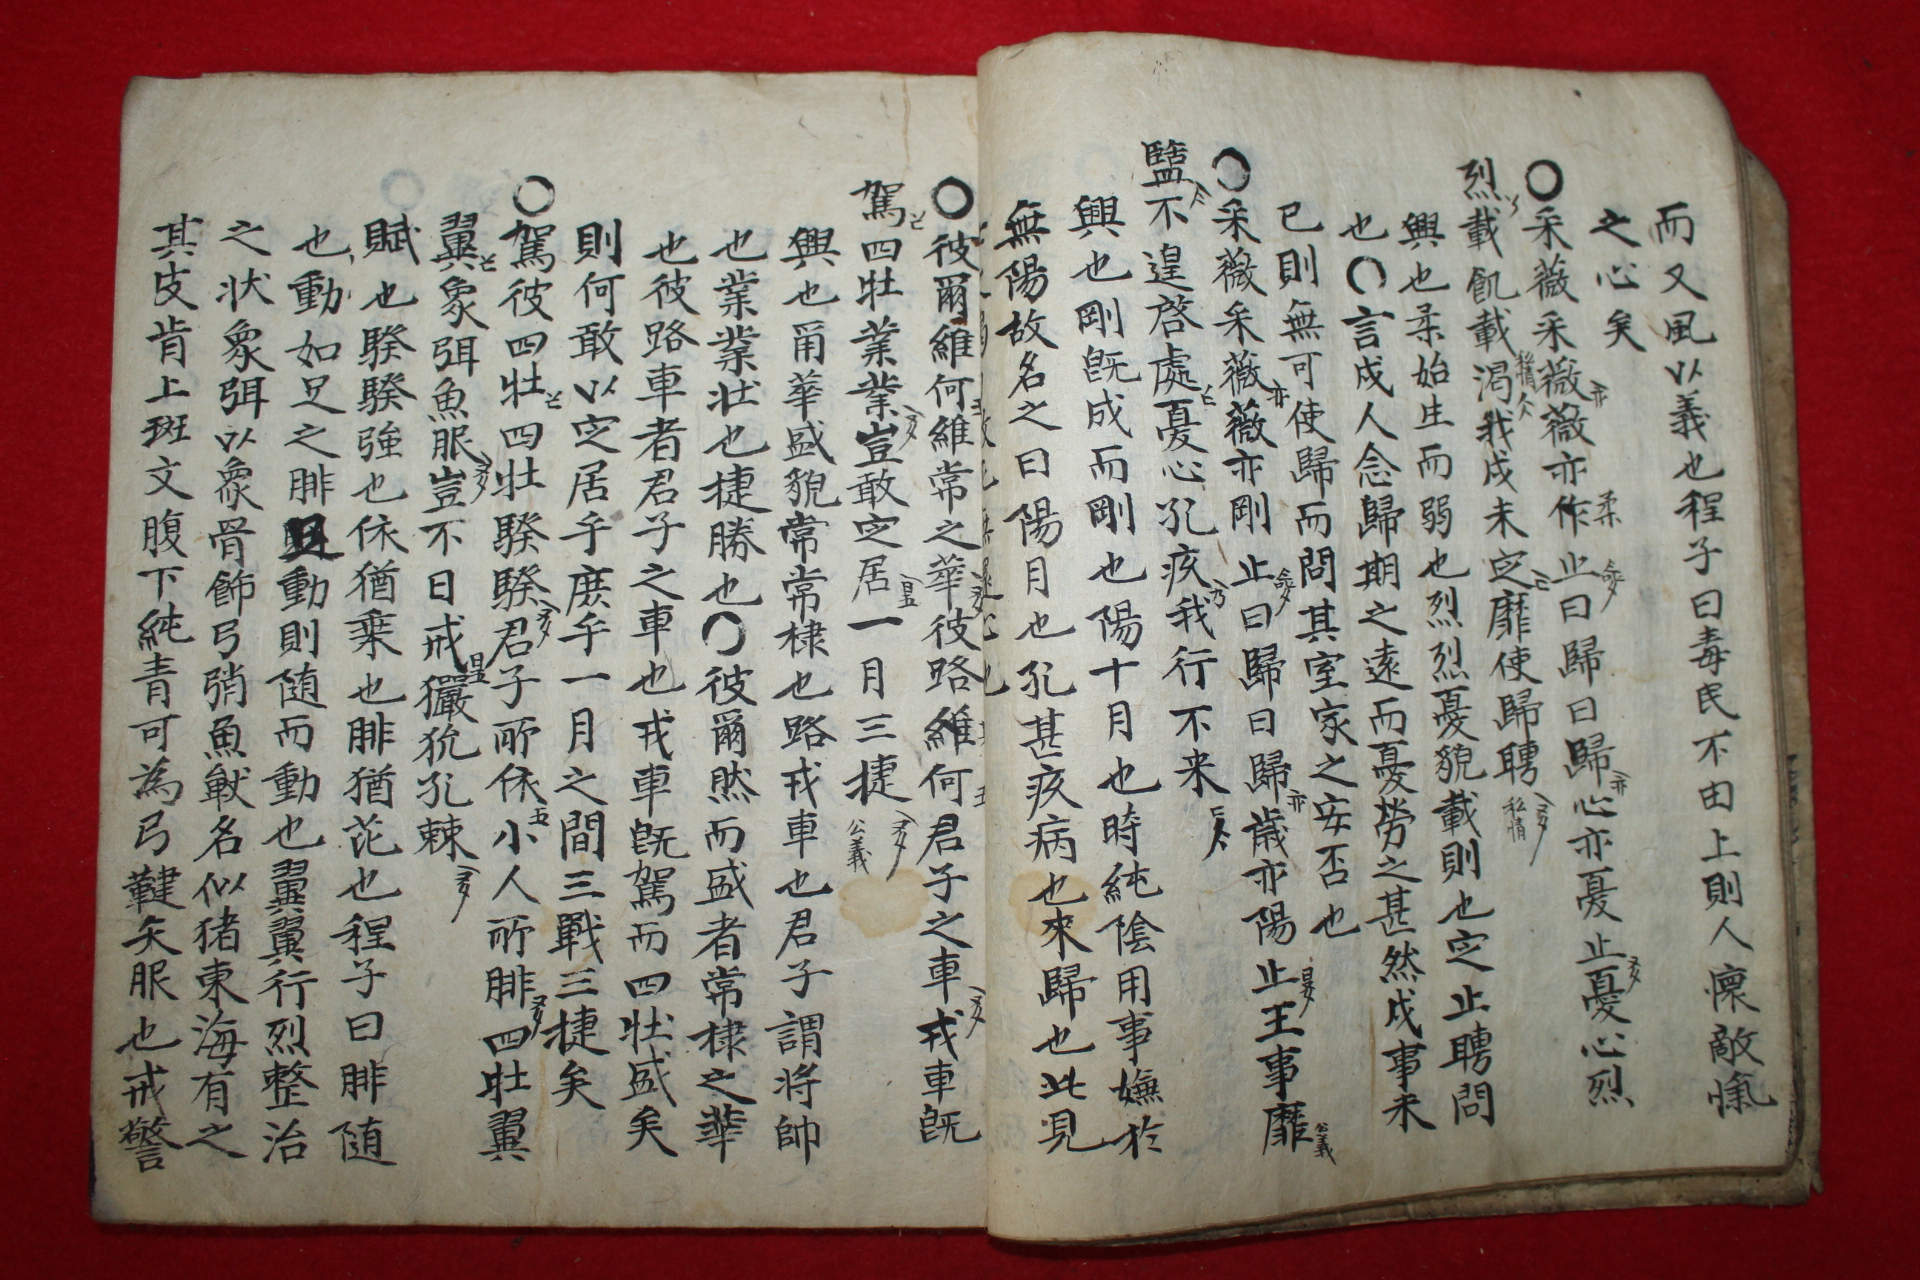 而又風以義也程子曰毒民不由上則人懷敵愾
之心矣
○采薇采薇薇亦作止曰歸曰歸心亦憂止憂心烈
烈載飢載渴我戍未㝎靡使歸聘
興也柔始生而弱也烈烈憂貌載則也㝎止聘問
也○言戍人念歸期之遠而憂勞之甚然戍事未
已則無可使歸而問其室家之安否也
○采薇采薇薇亦剛止曰歸曰歸歲亦陽止王事靡
盬不遑啓處憂心孔疚我行不来
興也剛既成而剛也陽十月也時純陰用事嫌於
無陽故名之曰陽月也孔甚疚病也來歸也此見
○彼爾維何維常之華彼路維何君子之車戎車既
駕四牡業業豈敢㝎居一月三捷
興也甬華盛貌常常棣也路戎車也君子謂将帥
也業業壮也捷勝也○彼爾然而盛者常棣之華
也彼路車者君子之車也戎車既駕而四牡盛矣
則何敢以㝎居乎庶乎一月之間三戰三捷矣
○駕彼四牡四牡騤騤君子所依小人所腓四牡翼
翼象弭魚服豈不日戒玁狁孔棘
賦也騤騤強也依猶乗也腓猶芘也程子曰腓随
也動如足之腓足動則随而動也翼翼行烈整治
之状象弭以象骨飾弓弰魚獣名似猪東海有之
其皮背上斑文腹下純青可為弓鞬矢服也戒警